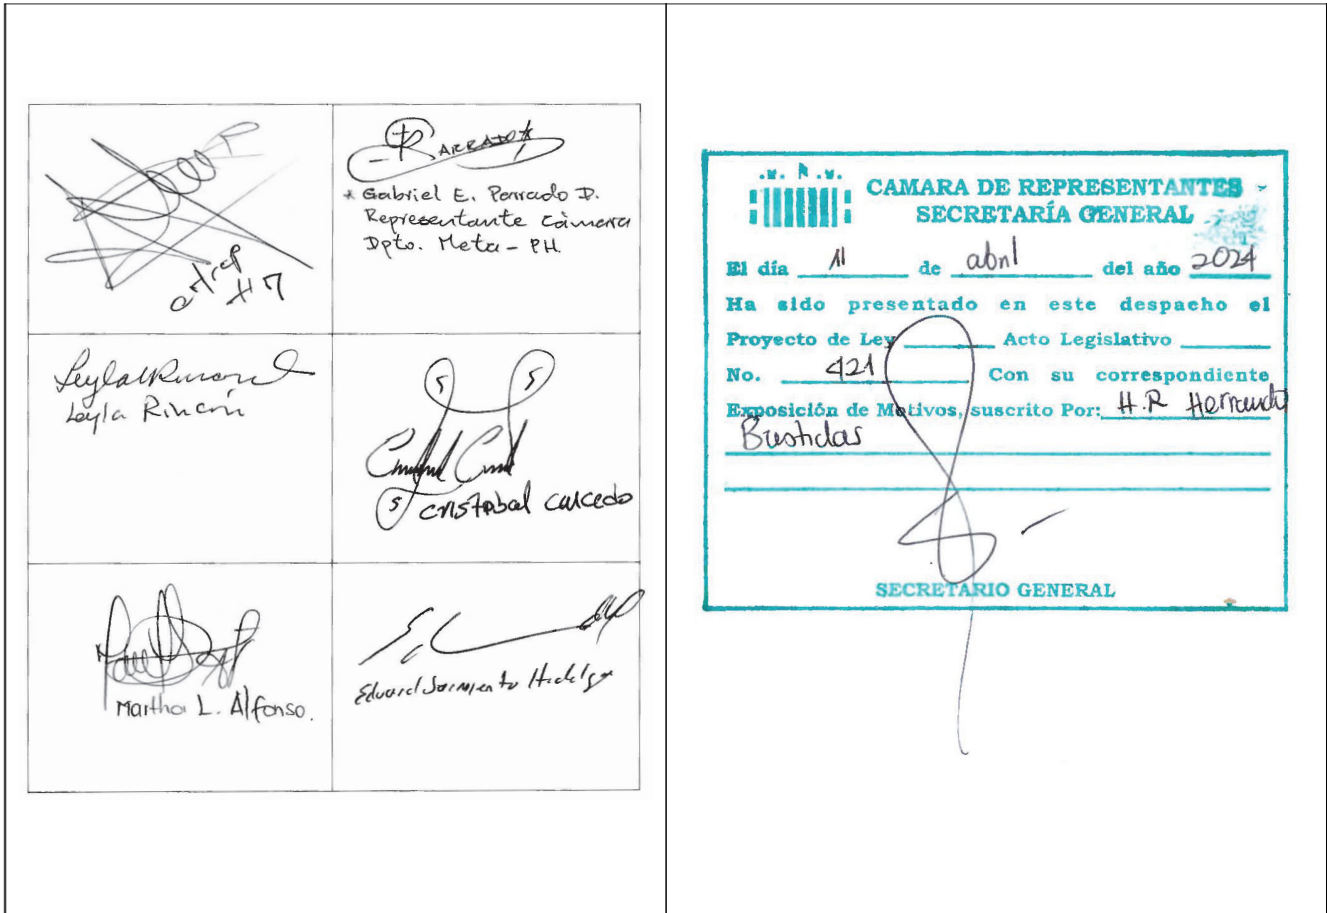 PARRADO
* Gabriel E. Parrado D.
Representante Cámara
Dpto. Meta - PH.
Leyla Rincón
Cristobal Caicedo
Martha L. Alfonso.
Eduard Sarmiento Hidalgo
CAMARA DE REPRESENTANTES
SECRETARÍA GENERAL
El día 11 de abril del año 2024
Ha sido presentado en este despacho el
Proyecto de Ley Acto Legislativo
No. 421 Con su correspondiente
Exposición de Motivos, suscrito Por: H.R Hernando
SECRETARIO GENERAL